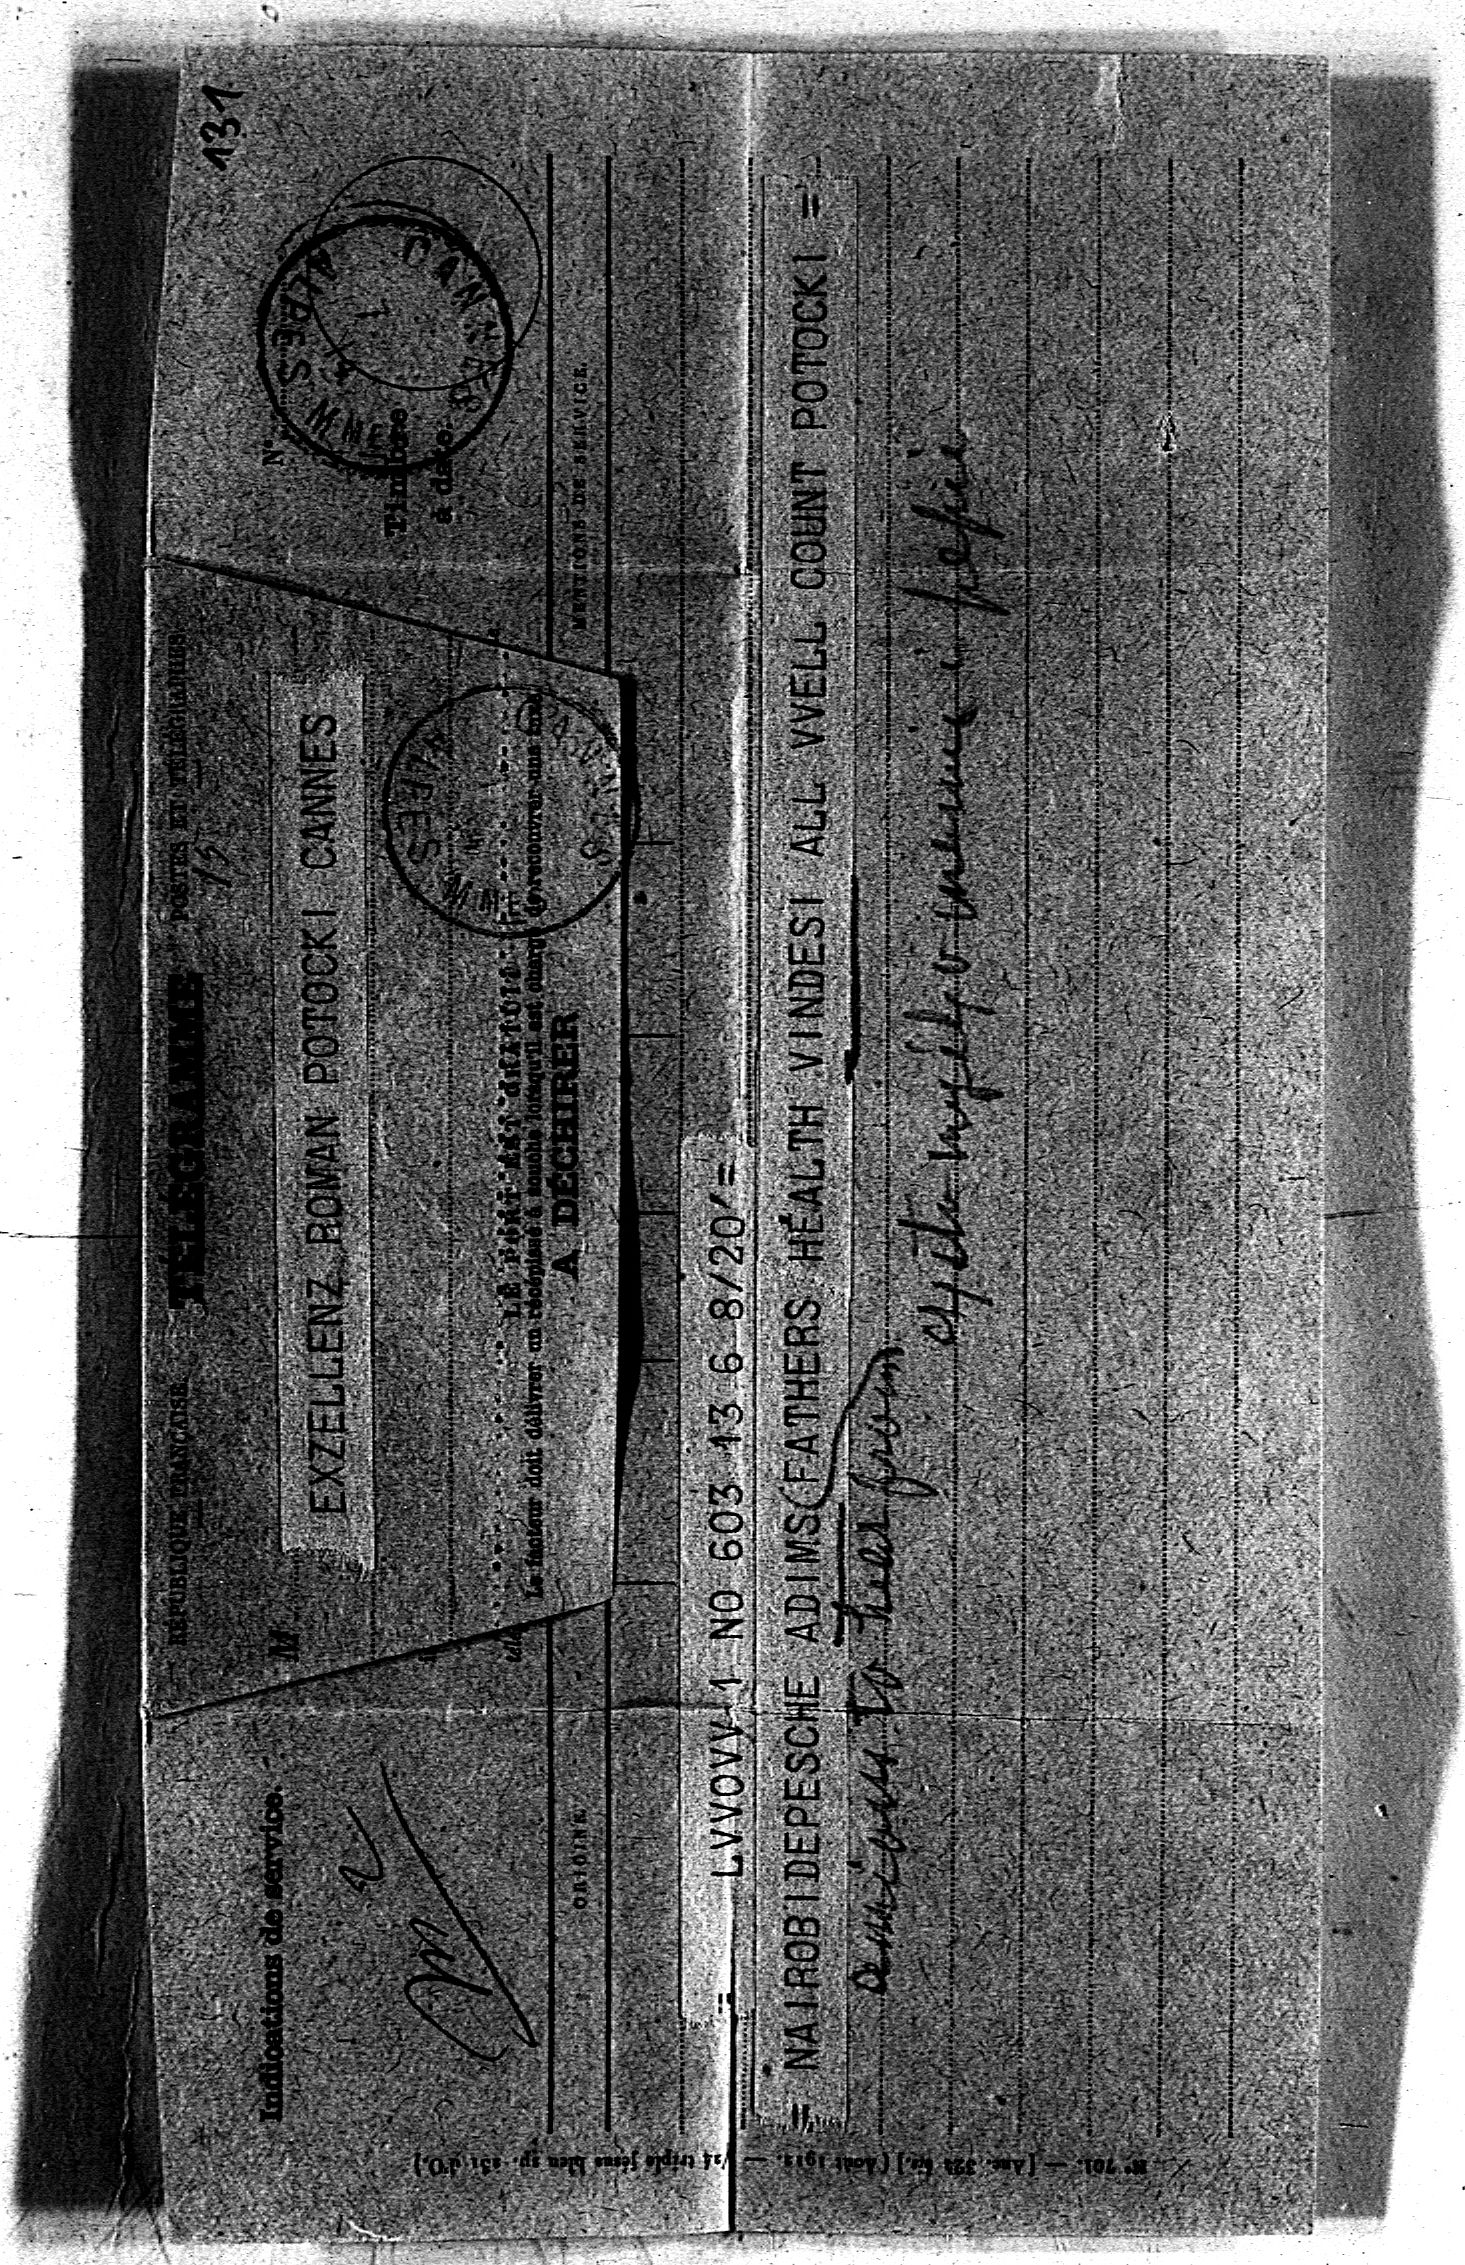 131
RÉPUBLIQUE FRANÇAISE. TÉLÉGRAMME POSTES ET TÉLÉGRAPHES
Indications de service.
N°
M
EXZELLENZ ROMAN POTOCKI CANNES
Timbre
à date.
CANNES
ALPES MMES
CANNES
ALPES MMES
LE PORT EST GRATUIT.
Le facteur doit délivrer un récépissé à souche lorsqu'il est chargé de recouvrer une taxe.
A DÉCHIRER
ORIGINE.
MENTIONS DE SERVICE.
LVVOVV 1 NO 603 13 6 8/20/=
= NAIROBIDEPESCHE ADIMS(FATHERS HEALTH VINDESI ALL VVELL COUNT POTOCKI =
to
N° 701. — [Anc. 328 bis.] (Août 1912. —